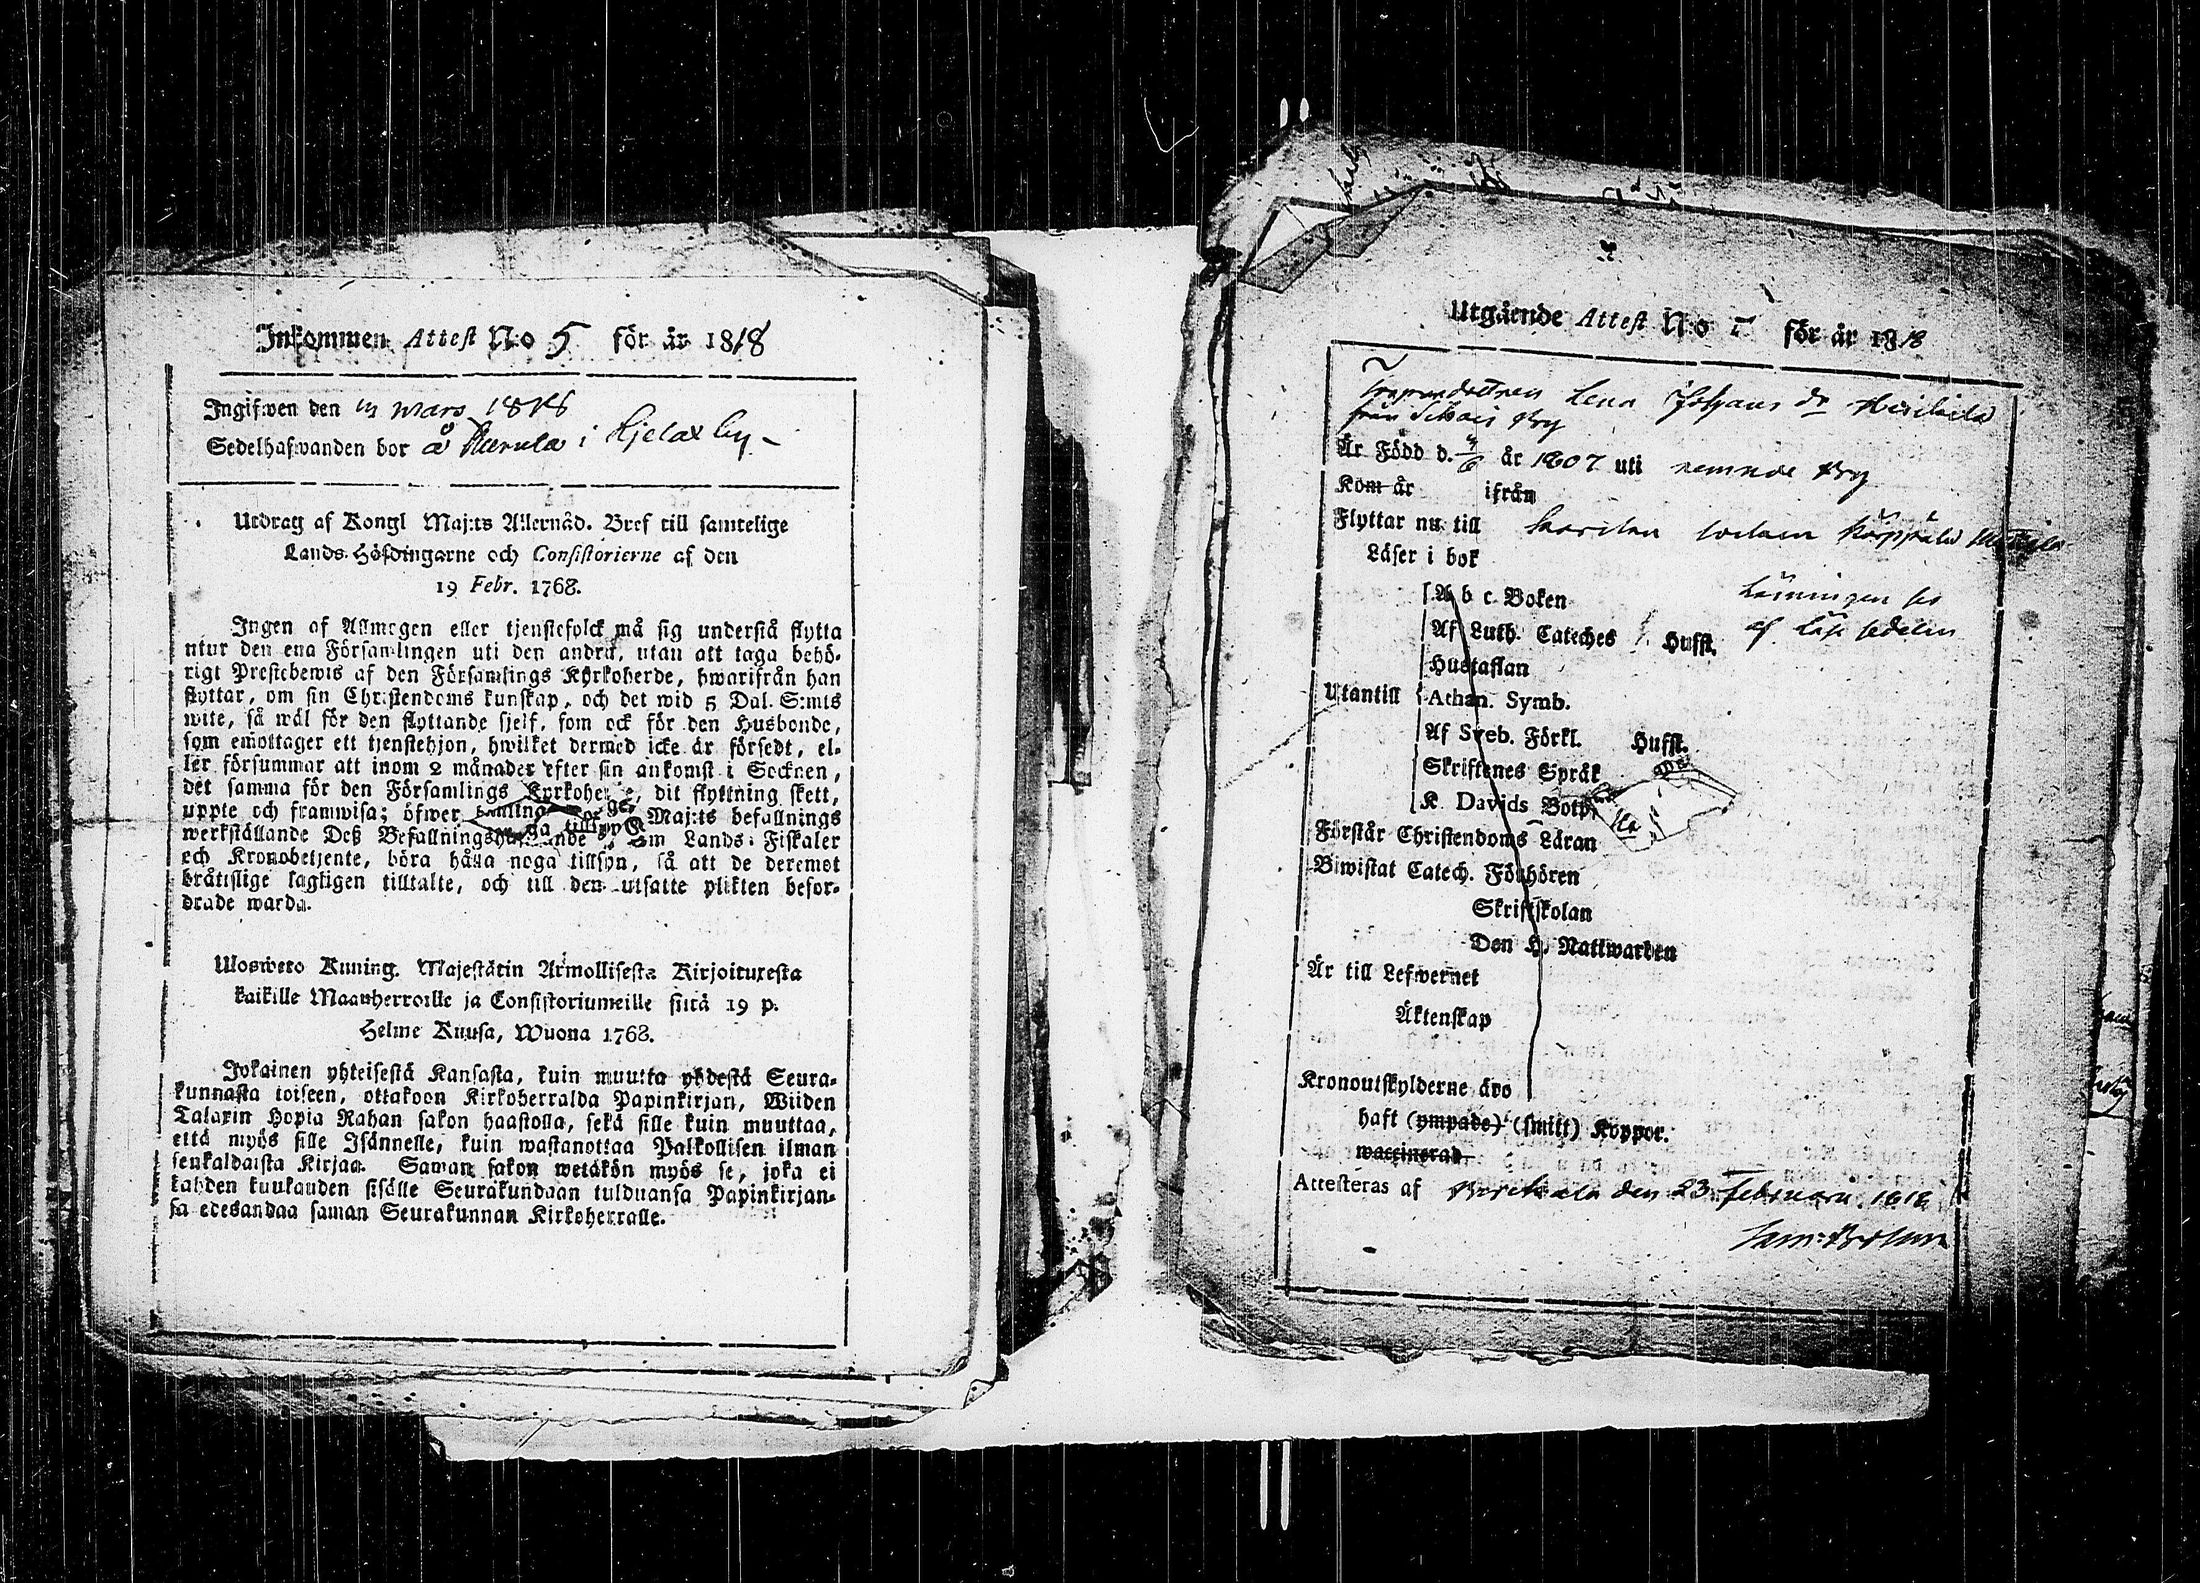 Inkommen Attest N:o 5 för år 1818
Ingifwen den mars 1818
Sedelhafwanden bor å i Kjelax by
Utdrag af Kongl Maj:ts Allernåd. Bref till samtelige
Lands-Höfdingarne och Consistorierne af den
19 Febr. 1768.
Ingen af Allmogen eller tjenstefolck må sig understå flytta
utur den ena Församlingen uti den andra, utan att taga behö-
rigt Prestebewis af den Församlings Kyrkoherde, hwarifrån han
flyttar, om sin Christendoms kunskap, och det wid 5 Dal. S:mts
wite, så wäl för den flyttande sjelf, som ock för den Husbonde,
som emottager ett tjenstehjon, hwilket dermed icke är försedt, el-
ler försummar att inom 2 månader efter sin ankomst i Socknen,
det samma för den Församlings Kyrkoherde, dit flyttning skett,
uppte och framwisa; öfwer Maj:ts befallnings
werkställande Deß Lands-Fiskaler
och Kronobetjente, böra hålla noga tillsyn, så att de deremot
bråtislige lagligen tilltalte, och till den utsatte plikten befor-
drade warda.
Uloswero Kuning. Majestätin Armollisesta Kirjoituxesta
kaikille Maanherroille ja Consistoriumeille siitä 19 p.
Helme Kuusa, Wuona 1768.
Jokainen yhteisestä Kansasta, kuin muutta yhdestä Seura-
kunnasta toiseen, ottakoon Kirkoherralda Papinkirjan, Wiiden
Talarin Hopia Rahan sakon haastolla, sekä sille kuin muuttaa,
että myös sille Isännelle, kuin wastanottaa Palkollisen ilman
senkaldaista Kirjaa. Saman sakon wetäkön myös se, joka ei
kahden kuukauden sisälle Seurakundaan tulduansa Papinkirjan-
sa edesandaa saman Seurakunnan Kirkoherralle.
Utgående Attest N:o för år 1818
Lena Johans dr
från By
Är Född d. år 1807 uti nemnde By
Kom år ifrån
Flyttar nu till
Läser i bok
A b c Boken
Af Luth. Cateches Hufst.
Hustaflan
Utantill Athan. Symb.
Af Sveb. Förkl. Hufst.
Skriftenes Språk
K. Davids Botp.
Läsningen ses
af Läse sedelen
Förstår Christendoms Läran
Biwistat Catech. Förhören
Skriftskolan
Den H. Nattwarden
Är till Lefwernet
Äktenskap
Kronoutskylderne äro
haft (ympade) (smitt) Koppor.
waccinerad
Attesteras af den 23 februarii 1818